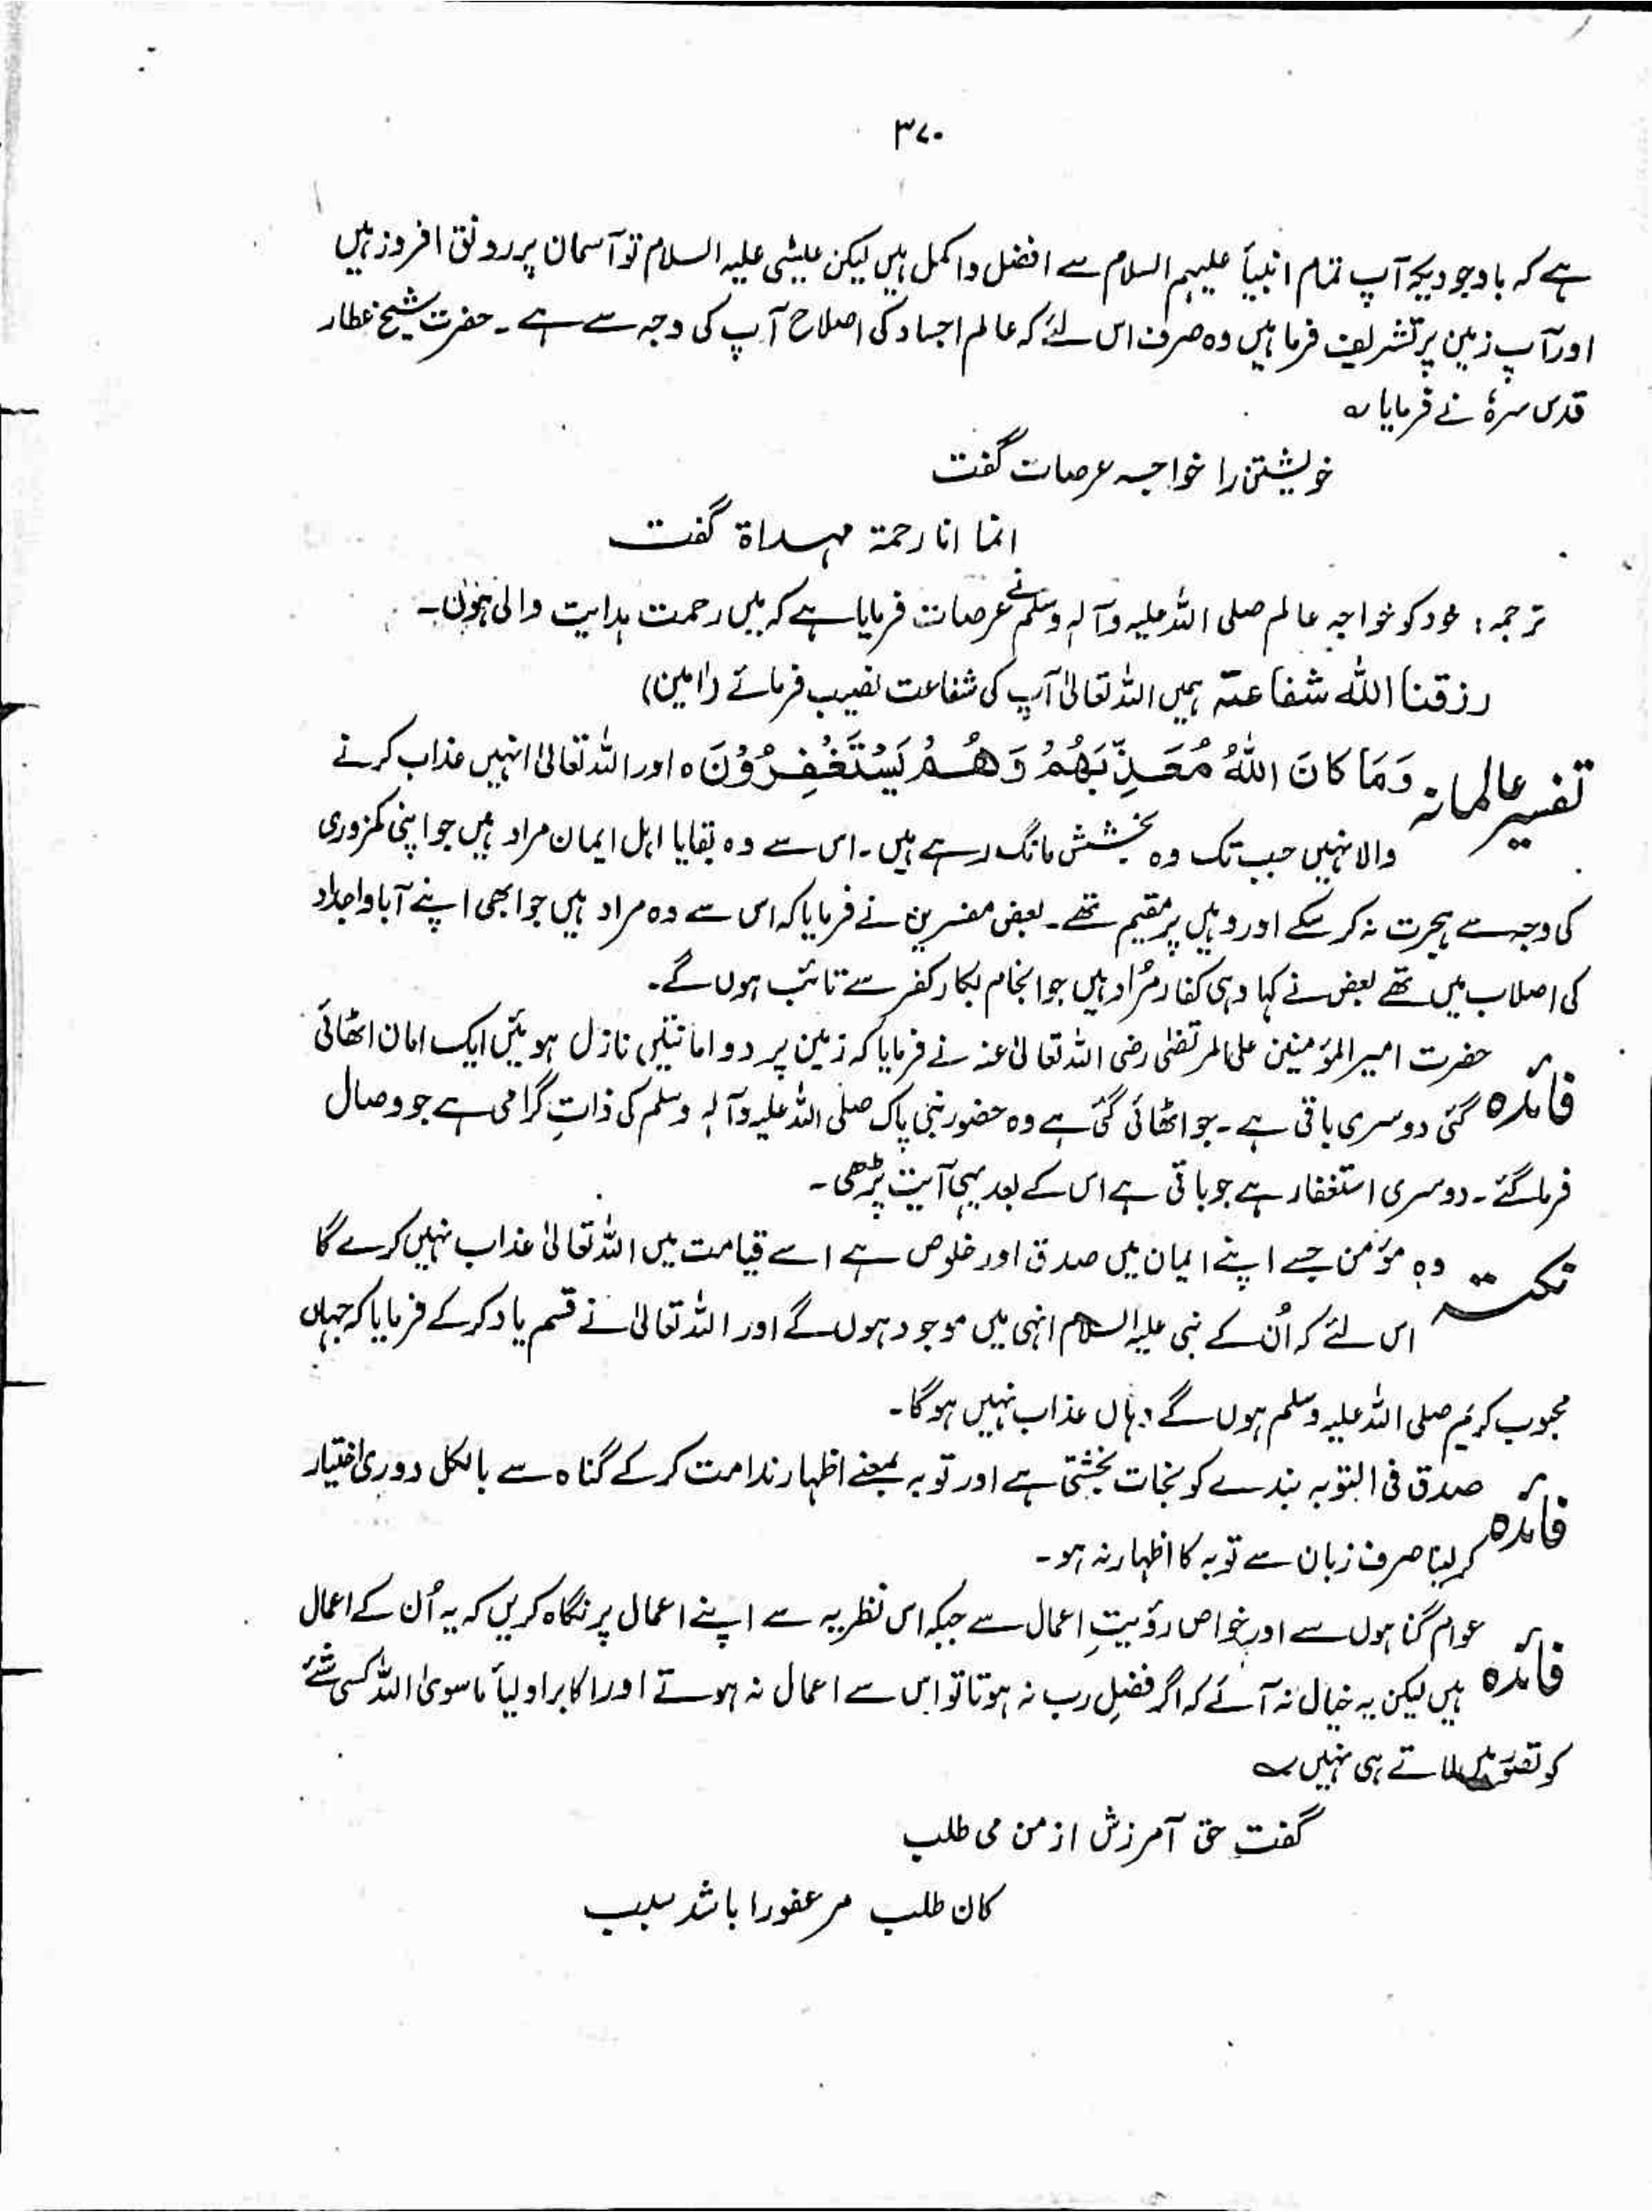 ۳۷۰
ہے کہ باوجودیکہ آپ تمام انبیأ علیہم السلام سے افضل واکمل ہیں لیکن عیسٰی علیہ السلام تو آسمان پر رونق افروز ہیں
اور آپ زمین پر تشریف فرما ہیں وہ صرف اس لئے کہ عالم اجساد کی اصلاح آپ کی وجہ سے ہے ۔ حضرت شیخ عطار
قدس سرہٗ نے فرمایا ؎
خویشتن را خواجہ عرصات گفت
انما انا رحمة مہداة گفت
ترجمہ : خود کو خواجہ عالم صلی اللہ علیہ وآلہ وسلم نے عرصات فرمایا ہے کہ میں رحمت ہدایت والی ہوں ۔
رزقنا اللّٰہ شفاعتہ ہمیں اللہ تعالیٰ آپ کی شفاعت نصیب فرمائے (آمین)
تفسیر عالمانہ وَمَا كَانَ اللّٰهُ مُعَذِّبَهُمْ وَهُمْ يَسْتَغْفِرُوْنَ ہ اور اللہ تعالیٰ انہیں عذاب کرنے
والا نہیں جب تک وہ بخشش مانگ رہے ہیں ۔ اس سے وہ بقایا اہل ایمان مراد ہیں جو اپنی کمزوری
کی وجہ سے ہجرت نہ کر سکے اور وہیں پر مقیم تھے ۔ بعض مفسرین نے فرمایا کہ اس سے وہ مراد ہیں جو ابھی اپنے آبا واجداد
کی اصلاب میں تھے بعض نے کہا وہی کفار مُراد ہیں جو انجام بکار کفر سے تائب ہوں گے ۔
فائدہ حضرت امیر المؤمنین علی المرتضٰی رضی اللہ تعالیٰ عنہ نے فرمایا کہ زمین پر دو امانتیں نازل ہوئیں ایک امان اٹھائی
گئی دوسری باقی ہے ۔ جو اٹھائی گئی ہے وہ حضور نبی پاک صلی اللہ علیہ وآلہ وسلم کی ذاتِ گرامی ہے جو وصال
فرما گئے ۔ دوسری استغفار ہے جو باقی ہے اس کے بعد یہی آیت پڑھی ۔
نکتہ وہ مؤمن جسے اپنے ایمان میں صدق اور خلوص ہے اسے قیامت میں اللہ تعالیٰ عذاب نہیں کرے گا
اس لئے کہ اُن کے نبی علیہ السلام انہی میں موجود ہوں گے اور اللہ تعالیٰ نے قسم یاد کر کے فرمایا کہ جہاں
محبوب کریم صلی اللہ علیہ وسلم ہوں گے وہاں عذاب نہیں ہوگا ۔
فائدہ صدق فی التوبہ بندے کو نجات بخشتی ہے اور توبہ بمعنے اظہار ندامت کر کے گناہ سے بالکل دوری اختیار
کر لینا صرف زبان سے توبہ کا اظہار نہ ہو ۔
فائدہ عوام گناہوں سے اور خواص رؤیتِ اعمال سے جبکہ اس نظریہ سے اپنے اعمال پر نگاہ کریں کہ یہ اُن کے اعمال
ہیں لیکن یہ خیال نہ آئے کہ اگر فضلِ رب نہ ہوتا تو اس سے اعمال نہ ہوتے اور اکابر اولیأ ماسویٰ اللہ کسی شئے
کو تصور میں لاتے ہی نہیں ؎
گفت حق آمرزش از من می طلب
کان طلب مر عفو را باشد سبب